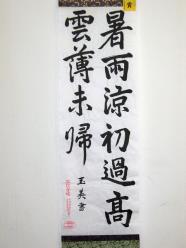 暑雨涼初過高
雲薄未帰
玉美書